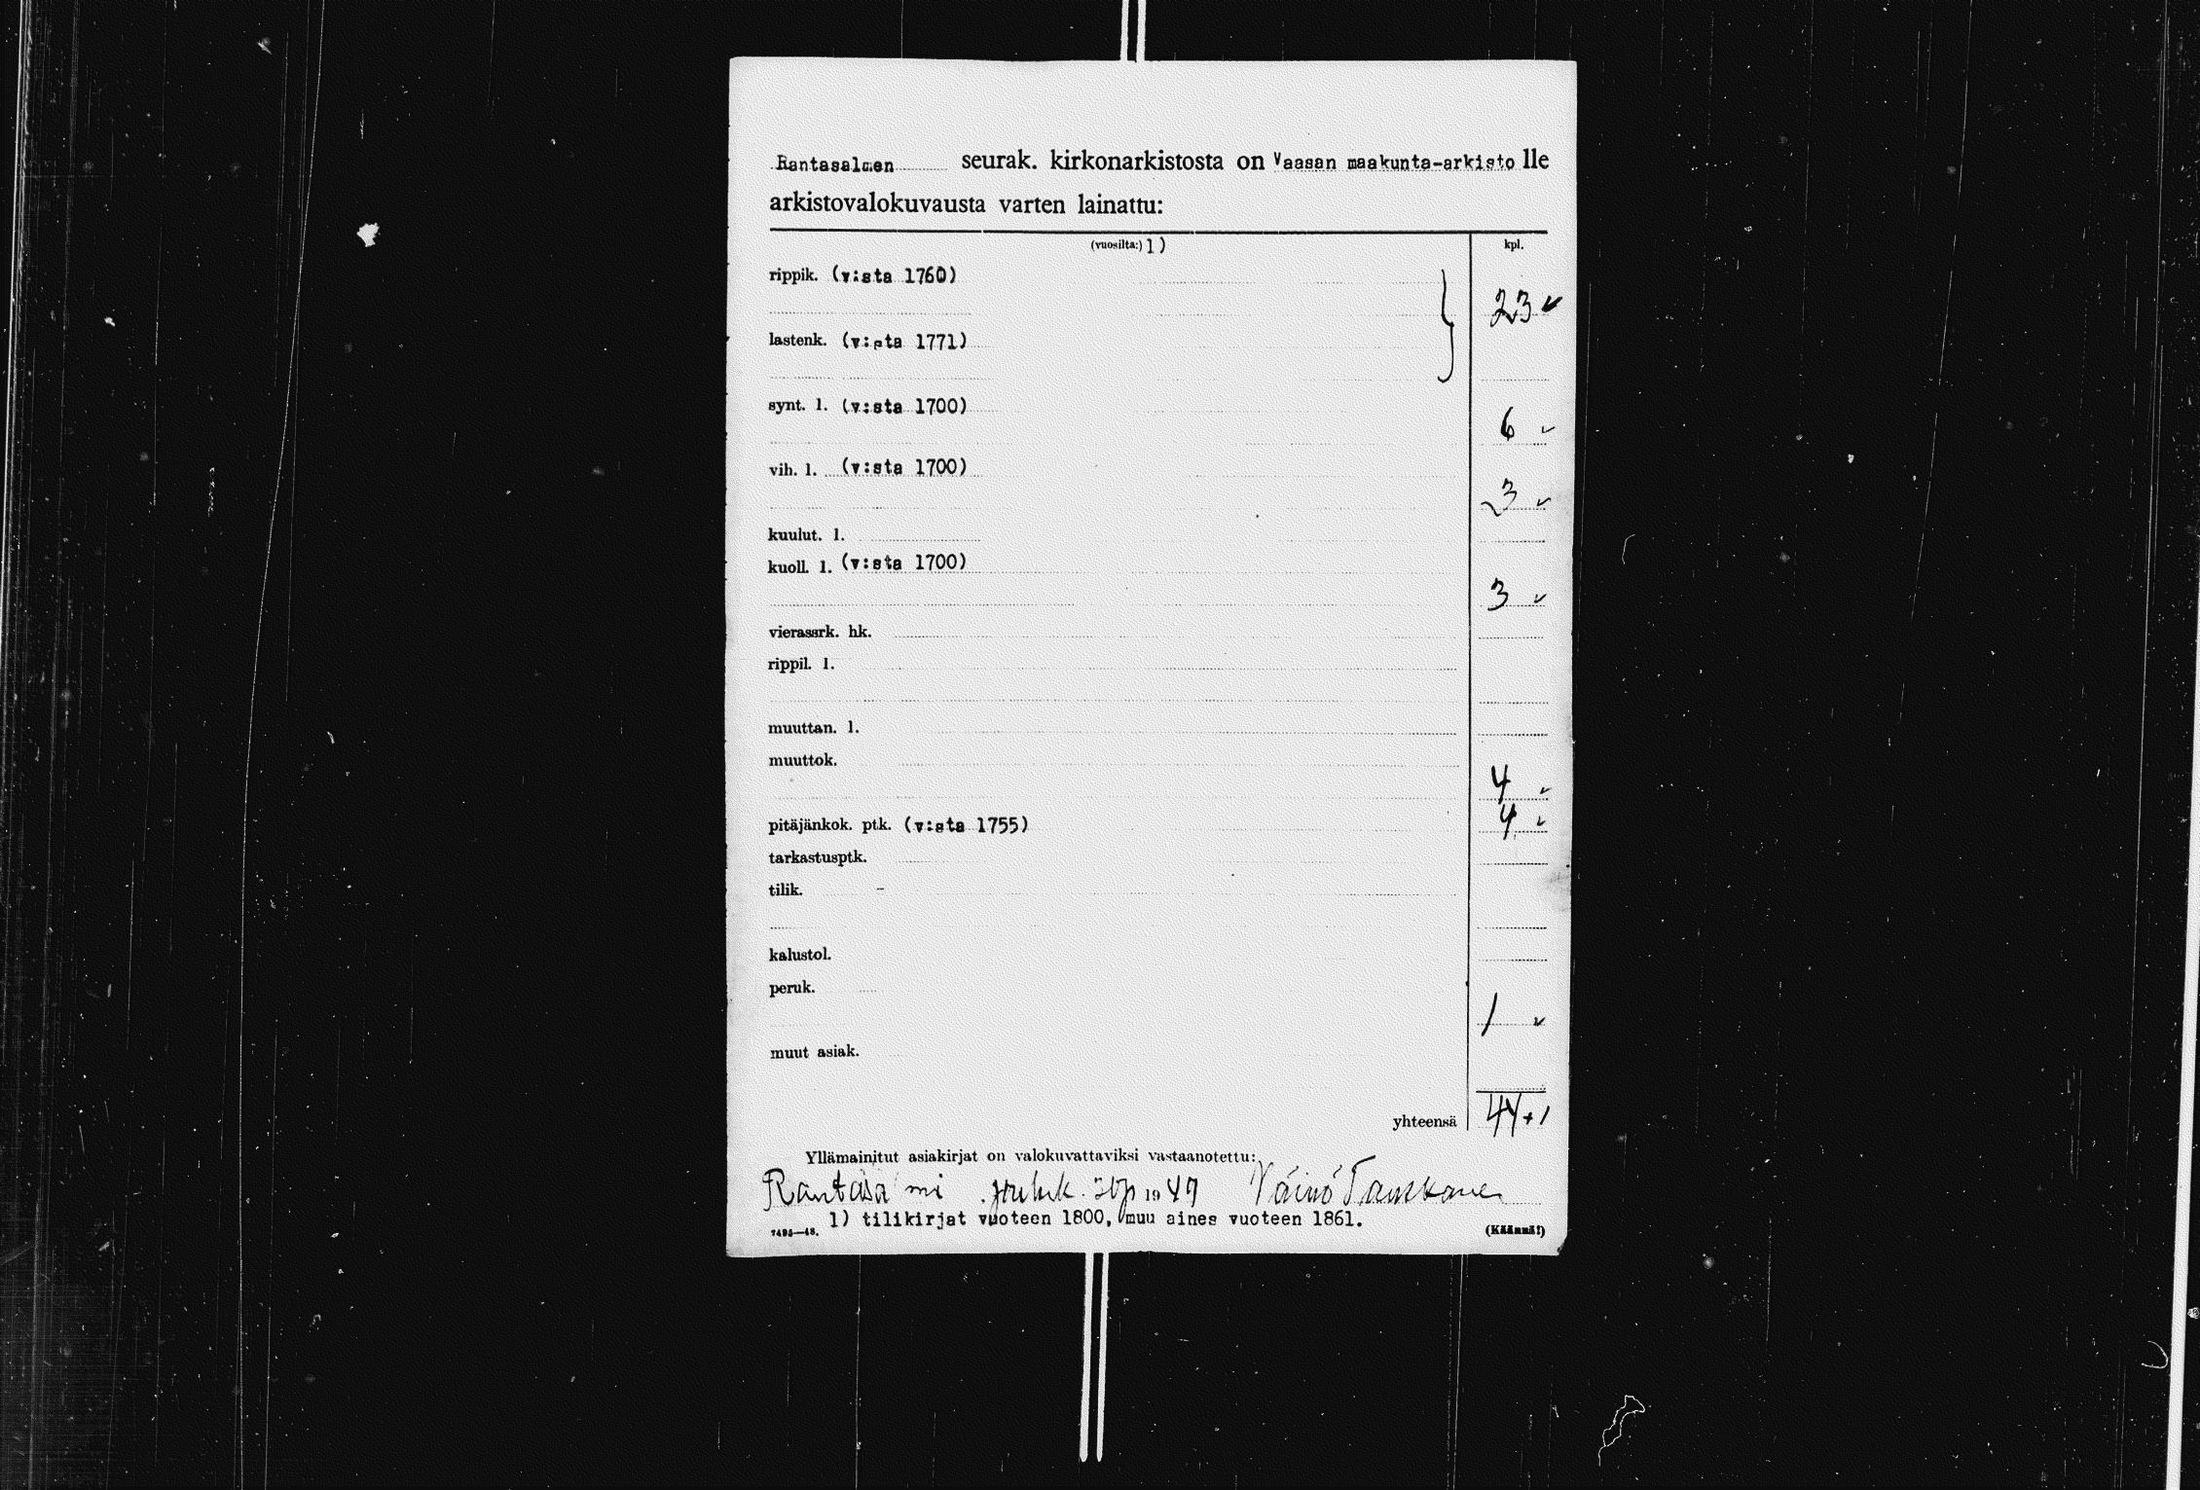 Rantasalmen seurak. kirkonarkistosta on Vaasan maakunta-arkisto lle
arkistovalokuvausta varten lainattu:
(vuosilta:) 1) kpl.
rippik. (v:sta 1760)
23 ✓
lastenk. (v:sta 1771)
synt. l. (v:sta 1700)
6 ✓
vih. l. (v:sta 1700)
3 ✓
kuulut. l.
kuoll. l. (v:sta 1700)
3 ✓
vierassrk. hk.
rippil. l.
muuttan. l.
muuttok.
4 ✓
pitäjänkok. ptk. (v:sta 1755) 4 ✓
tarkastusptk.
tilik. –
kalustol.
peruk.
1 ✓
muut asiak.
yhteensä 44+1
Yllämainitut asiakirjat on valokuvattaviksi vastaanotettu:
Rantasalmi jouluk. 1949 Väinö Tanskanen
1) tilikirjat vuoteen 1800, muu aines vuoteen 1861.
7495—48. (Käännä!)